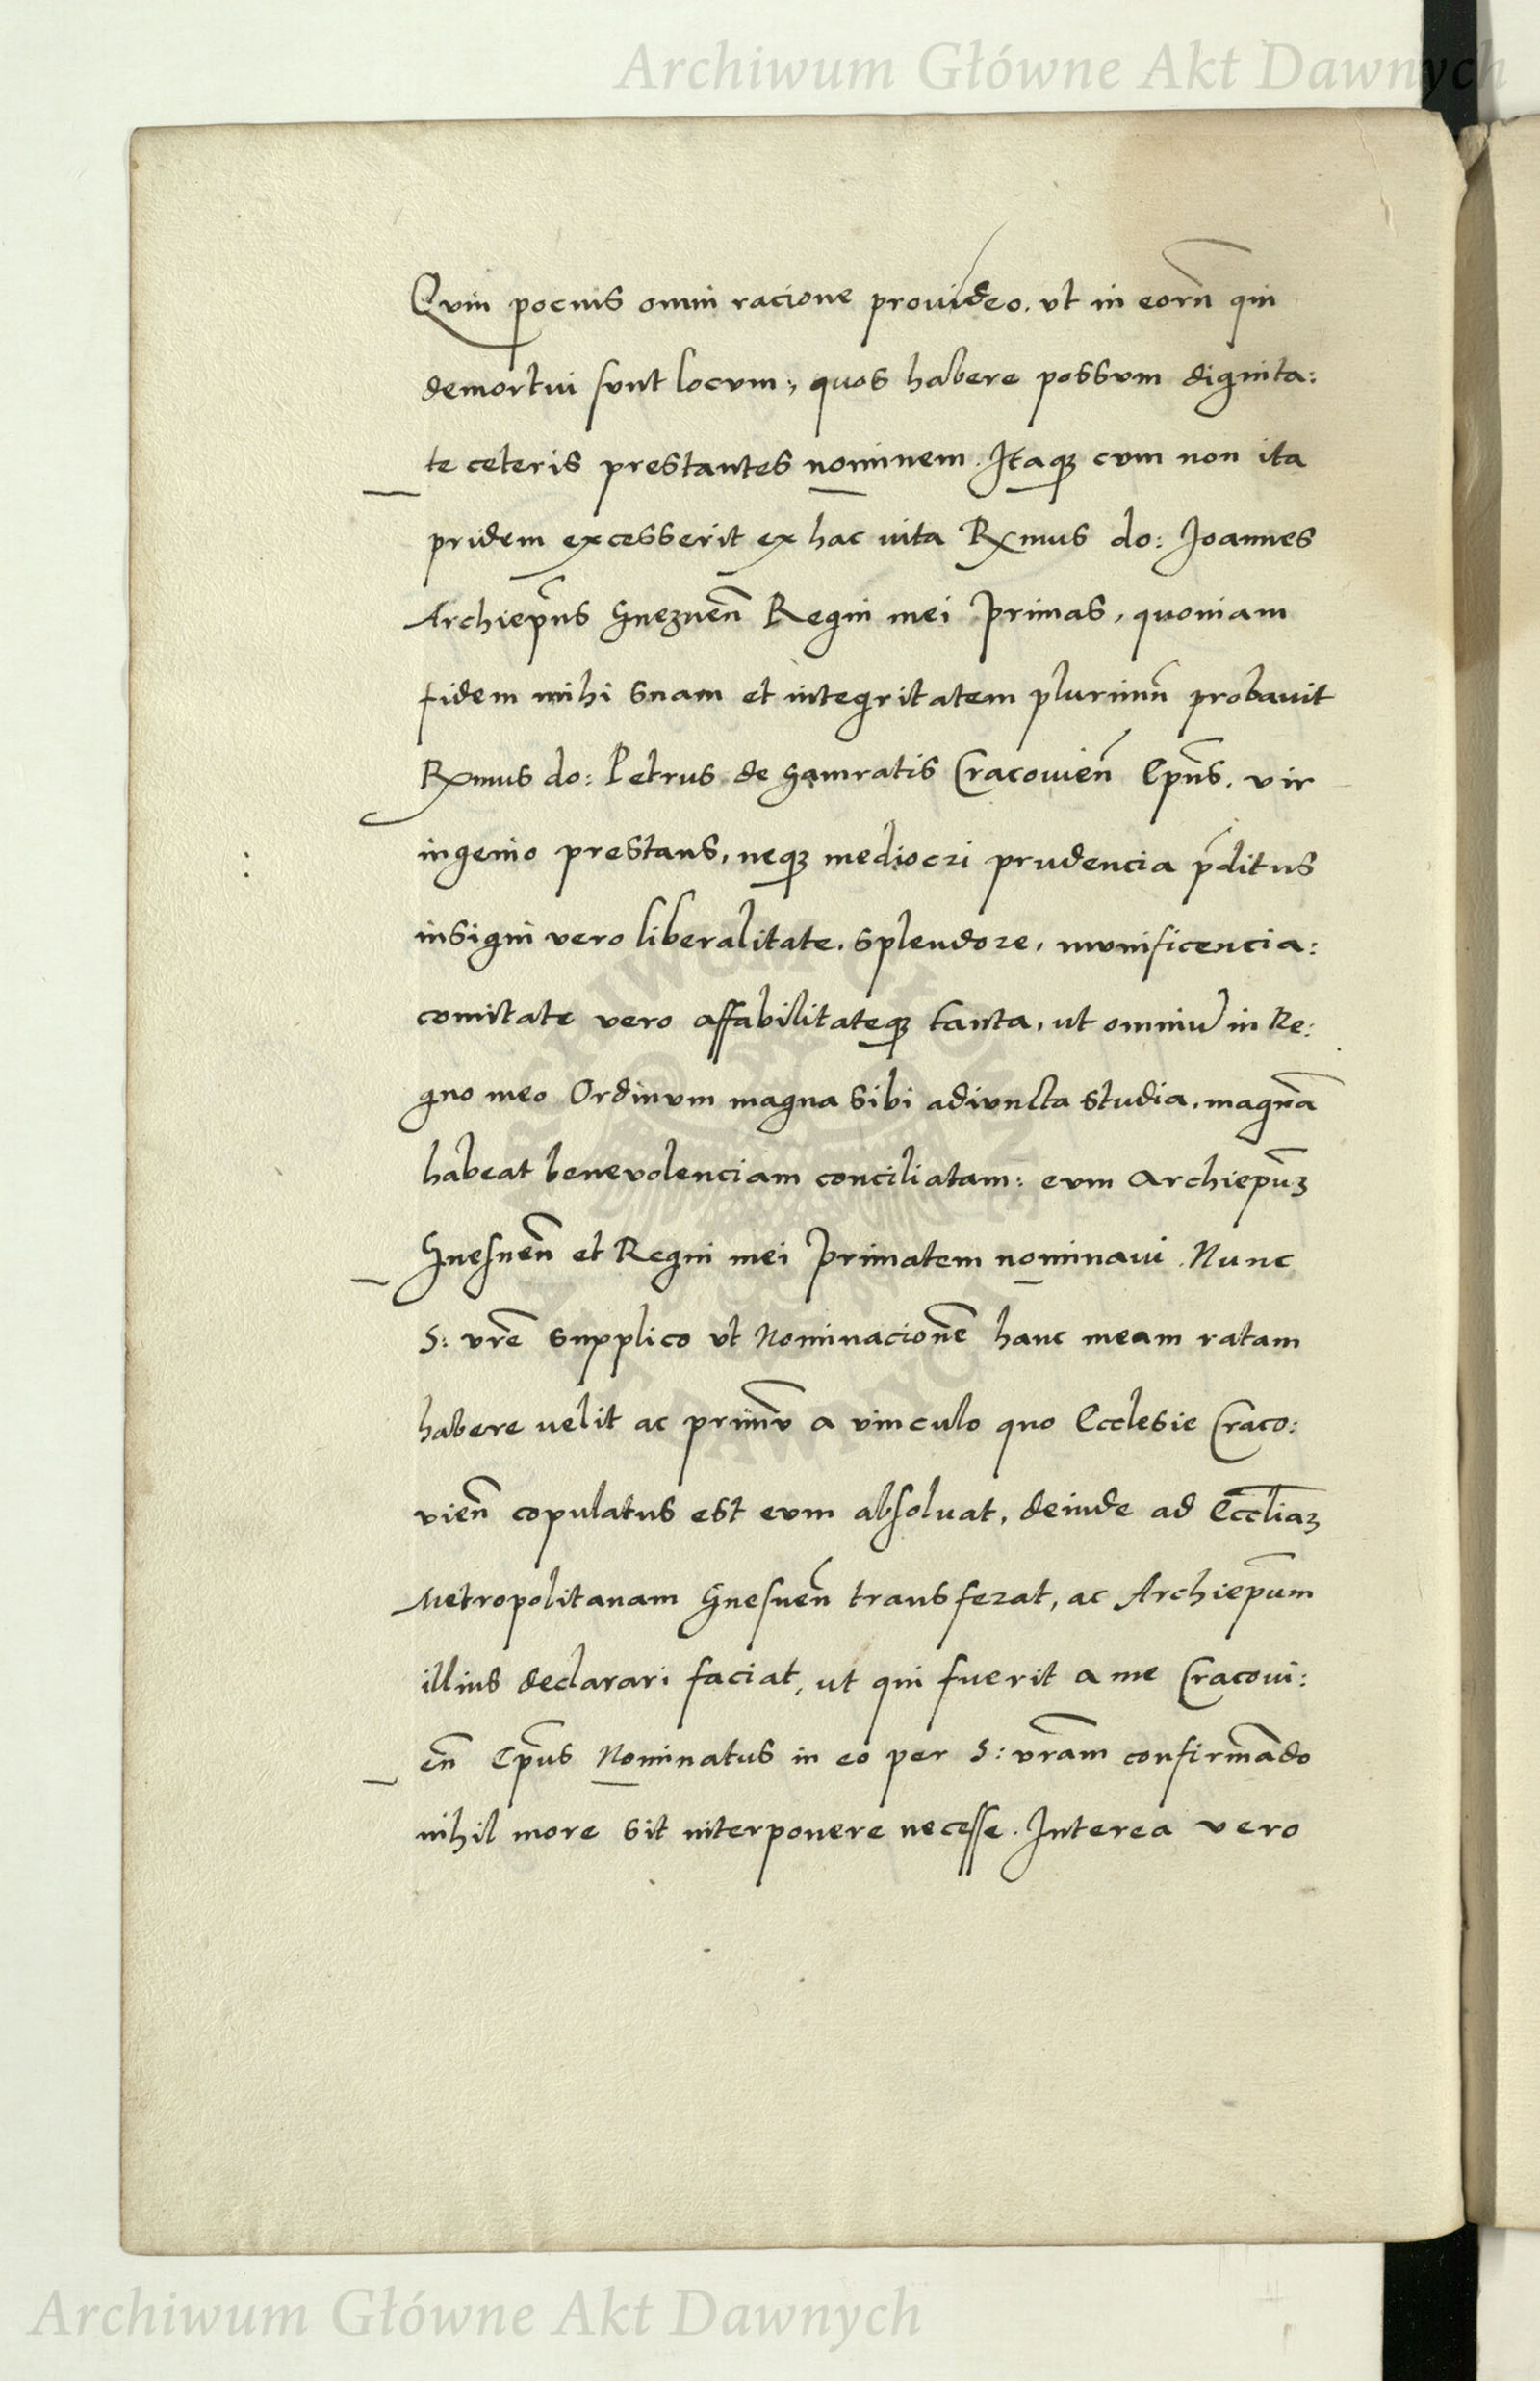 Archiwum Główne Akt Dawnych
Qvin pocius omni racione prouideo. vt in eorũ qui
demortui sunt locum, quos habere possum dignita:
te ceteris prestantes nominem. Itaqꝫ cum non ita
pridem excesserit ex hac uita Rx̃mus do: Joannes
Archiep̃us Gneznen̄ Regni mei Primas, quoniam
fidem mihi suam et integritatem plurimũ probauit
Rx̃mus do: Petrus de Gamratis Cracouien̄ Ep̃us. vir
ingenio prestans, neqꝫ mediocri prudencia p̃ditus
insigni vero liberalitate. splendore, munificencia:
comitate vero affabilitateqꝫ tanta, ut omniũ in Re:
gno meo Ordinum magna sibi adiuncta studia, magnã
habeat beneuolenciam conciliatam: eum Archiep̃uꝫ
Gnesnen̄ et Regni mei Primatem nominaui. Nunc
S: vr̃e supplico vt Nominacionẽ hanc meam ratam
habere uelit ac primũ a vinculo quo Ecclesie Craco:
vien̄ copulatus est eum absoluat, deinde ad Eccl̃iaꝫ
Metropolitanam Gnesnen̄ transferat, ac Archiep̃um
illius declarari faciat, ut qui fuerit a me Cracoui:
en̄ Ep̃us Nominatus in eo per S: vr̃am confirmãdo
nihil more sit interponere necesse. Interea vero
Archiwum Główne Akt Dawnych